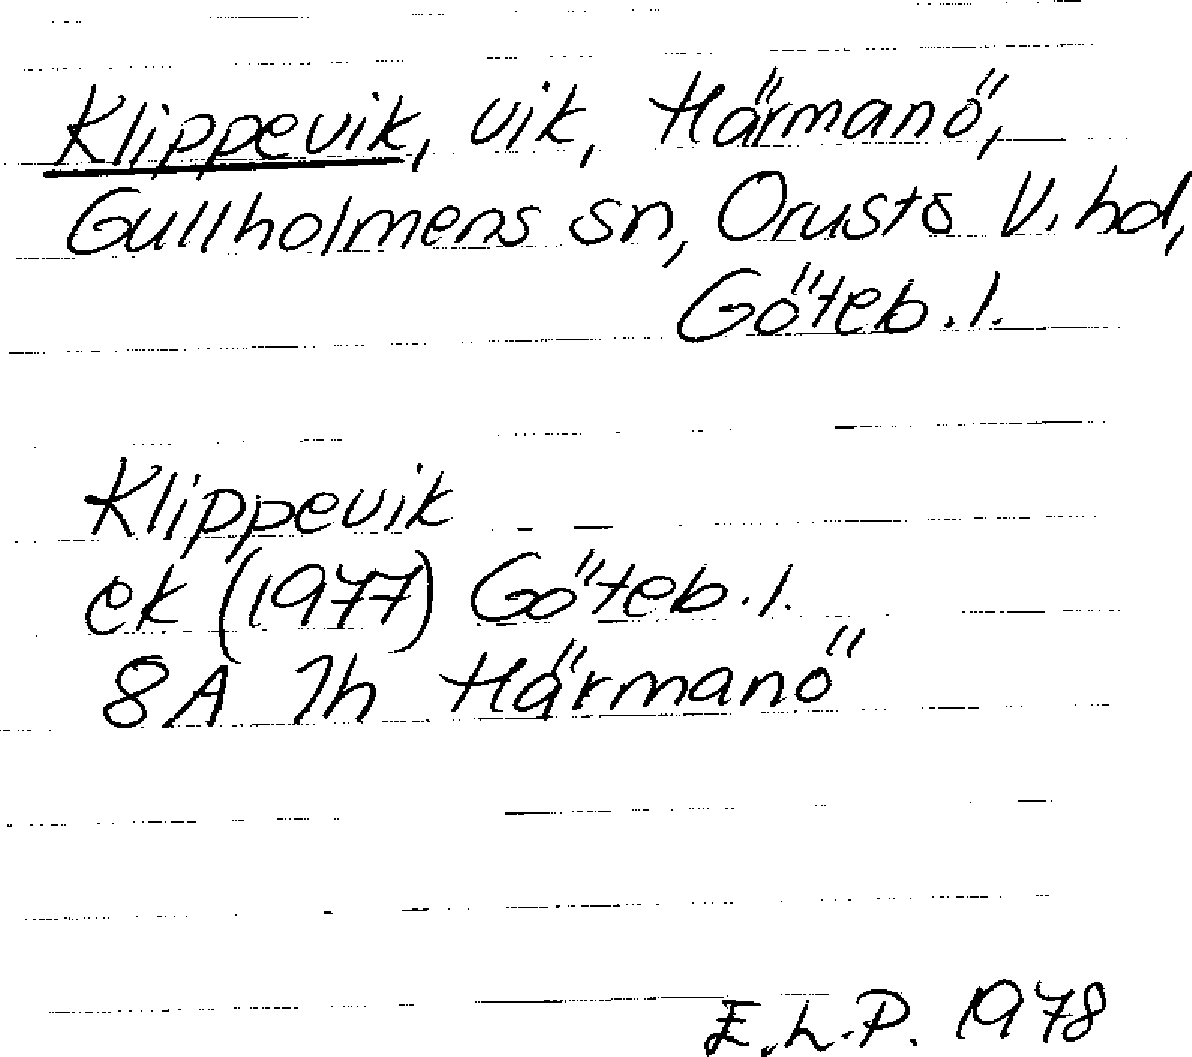 Klippevik, vik, Härmanö,
Gullholmens sn, Orusts V. hd,
Göteb. l.
Klippevik
ek (1977) Göteb. l.
8A 7h Härmanö
E.L.P. 1978